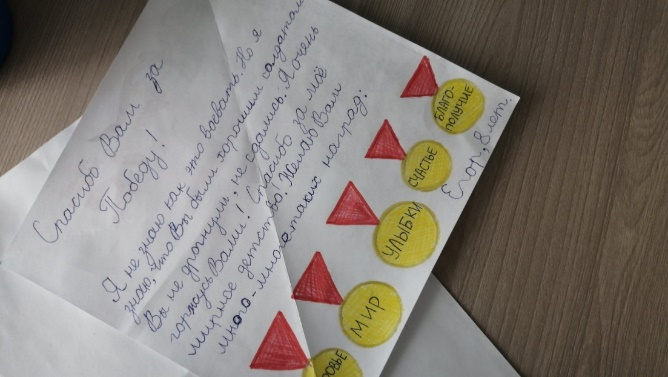 Спасибо Вам за
Победу!
Я не знаю как это воевать. Но я
знаю, что Вы были хорошим солдатом
Вы не дрогнули, не сдались. Я очень
горжусь Вами! Спасибо за моё
мирное детство! Желаю Вам
много-много таких наград:
РОВЬЕ
МИР
УЛЫБКИ
СЧАСТЬЕ
БЛАГО-
ПОЛУЧИЕ
Егор, 8 лет.